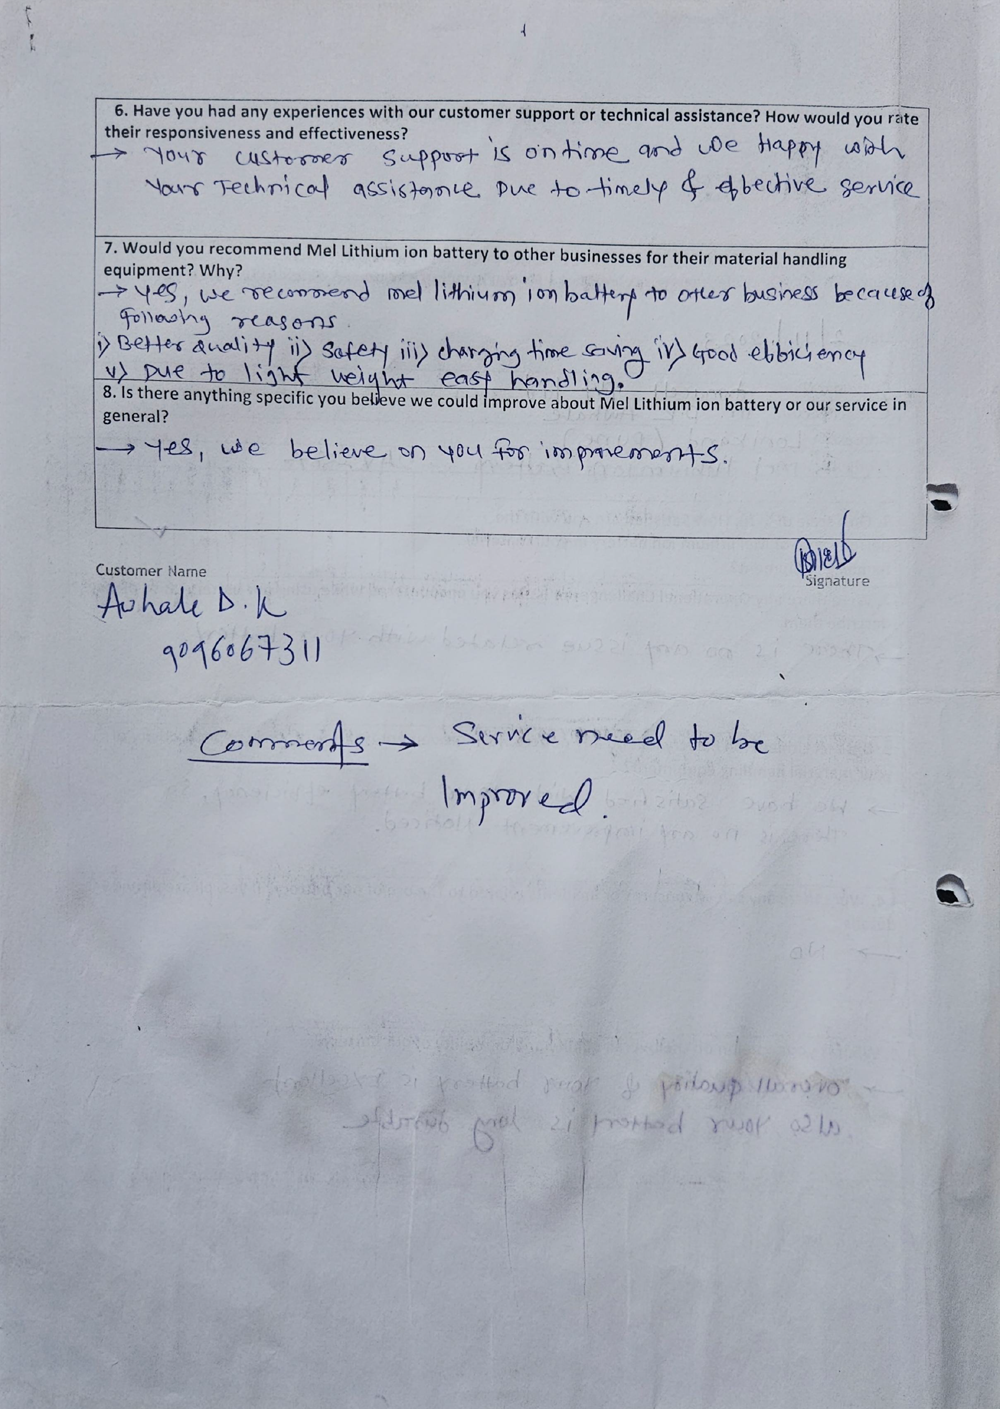 6. Have you had any experiences with our customer support or technical assistance? How would you rate
their responsiveness and effectiveness?
→ Your customer support is on time and we Happy with
Your Technical assistance Due to timely & effective service
7. Would you recommend Mel Lithium ion battery to other businesses for their material handling
equipment? Why?
→ Yes, we recommend mel lithium ion battery to other business because of
following reasons.
i) Better quality ii) Safety iii) charging time saving iv) Good efficiency
v) Due to light weight easy handling.
8. Is there anything specific you believe we could improve about Mel Lithium ion battery or our service in
general?
→ Yes, we believe on you for improvements.
Customer Name
Signature
Auhale D.K
9096067311
Comments → Service need to be
Improved.